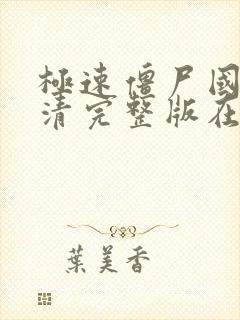 極速僵尸國
清完整版在
葉美香